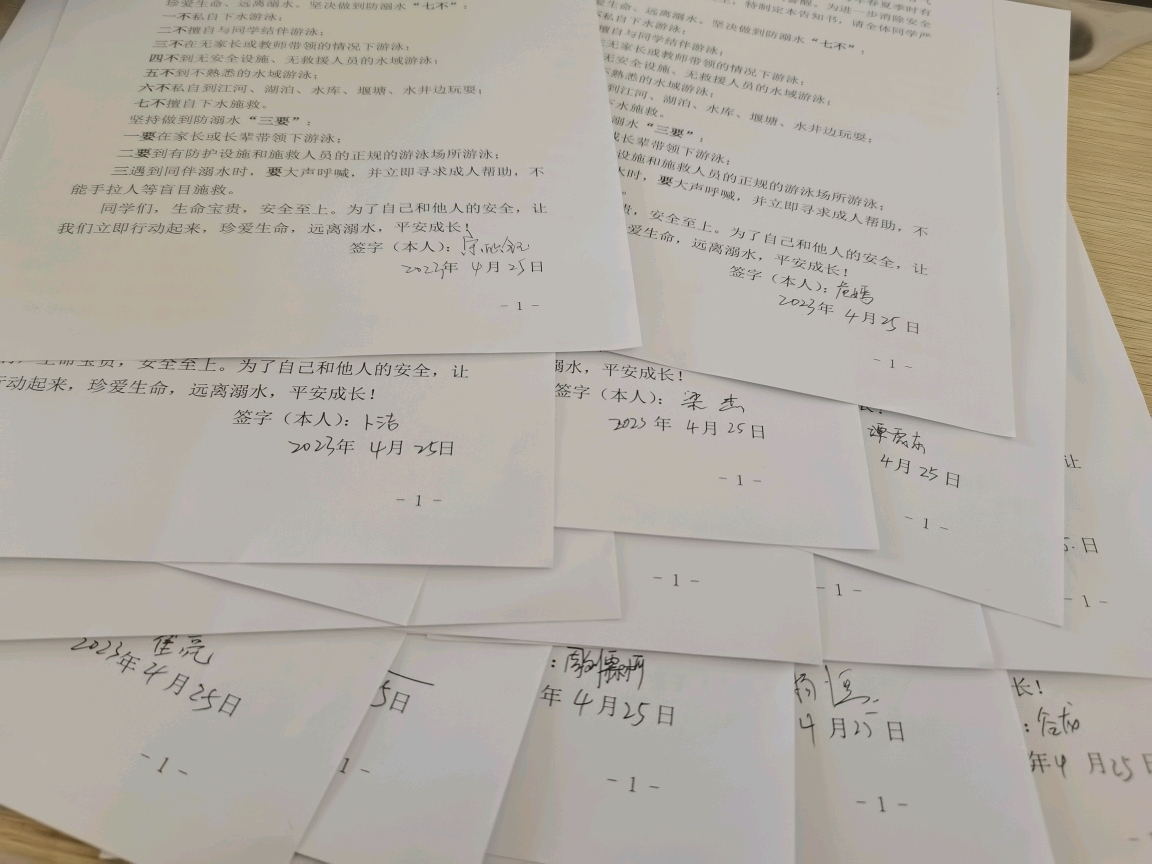 珍爱生命、远离溺水。坚决做到防溺水“七不”：
一不私自下水游泳；
二不擅自与同学结伴游泳；
三不在无家长或教师带领的情况下游泳；
四不到无安全设施、无救援人员的水域游泳；
五不到不熟悉的水域游泳；
六不私自到江河、湖泊、水库、堰塘、水井边玩耍；
七不擅自下水施救。
坚持做到防溺水“三要”：
一要在家长或长辈带领下游泳；
二要到有防护设施和施救人员的正规的游泳场所游泳；
三遇到同伴溺水时，要大声呼喊，并立即寻求成人帮助，不
能手拉人等盲目施救。
同学们，生命宝贵，安全至上。为了自己和他人的安全，让
我们立即行动起来，珍爱生命，远离溺水，平安成长！
签字（本人）：
2023年 4月25日
- 1 -
特制定本告知书，请全体同学严
坚决做到防溺水“七不”：
私自下水游泳；
擅自与同学结伴游泳；
无家长或教师带领的情况下游泳；
无安全设施、无救援人员的水域游泳；
不熟悉的水域游泳；
到江河、湖泊、水库、堰塘、水井边玩耍；
下水施救。
溺水“三要”：
成长辈带领下游泳；
设施和施救人员的正规的游泳场所游泳；
水时，要大声呼喊，并立即寻求成人帮助，不
贵，安全至上。为了自己和他人的安全，让
爱生命，远离溺水，平安成长！
签字（本人）：
2023年 4月25日
- 1 -
安全至上。为了自己和他人的安全，让
动起来，珍爱生命，远离溺水，平安成长！
签字（本人）：卜洁
2023年 4月25日
- 1 -
溺水，平安成长！
签字（本人）：梁杰
2023年 4月25日
- 1 -
4月25日
- 1 -
让
日
- 1 -
- 1 -
- 1 -
崔亮
2023年4月25日
- 1 -
5日
1 -
年 4月25日
- 1 -
4月25日
- 1 -
长！
年4月25日
- 1